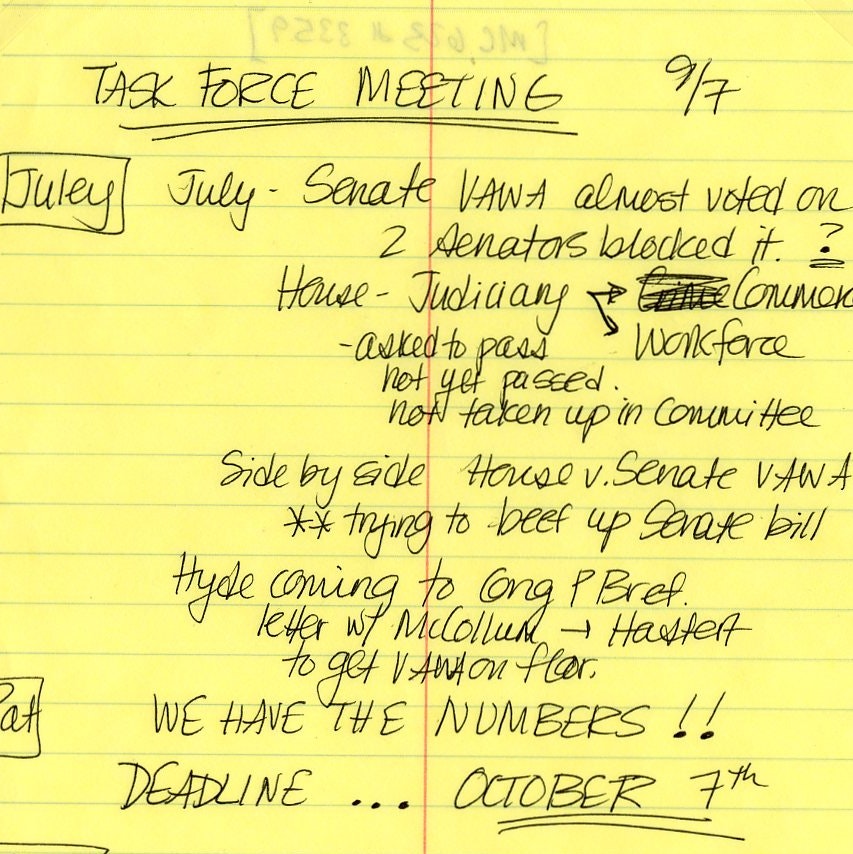 [MC 623 # 3359]
TASK FORCE MEETING 9/7
Juley July - Senate VAWA almost voted on
2 Senators blocked it. ?
House - Judiciary → Commerc
- asked to pass → Workforce
not yet passed.
not taken up in Committee
Side by side House v. Senate VAWA
** trying to beef up Senate bill
Hyde coming to Cong P Bref.
letter w/ McCollum → Hastert
to get VAWA on floor.
Pat WE HAVE THE NUMBERS !!
DEADLINE ... OCTOBER 7th